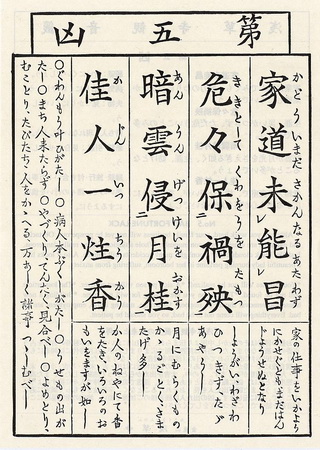 第五凶
家道未能昌
かどういまださかんなるあたわず
家の仕事をいかよう
にかせげどもまだはん
じようせぬとなり
危々保禍殃
ききとしてくわをうをたもつ
しようがいわざわ
ひつきずたゞ
あやうし
暗雲侵二月桂一
あんうんげつけいをおかす
月にむらくもの
かゝるごとくさま
たげ多し
佳人一炷香
かじんいつちうかう
か人のねやにて香
をたきいろいろのお
もいをますが如し
○ぐわんもう叶ひがたし ○病人本ぶくしがたし ○うせもの出が
たし ○まち人来たらず ○やづくりてんたく見合べし ○よめとり、
むことりたびたち、人をかゝへる、万あしく諸事つゝしむべし